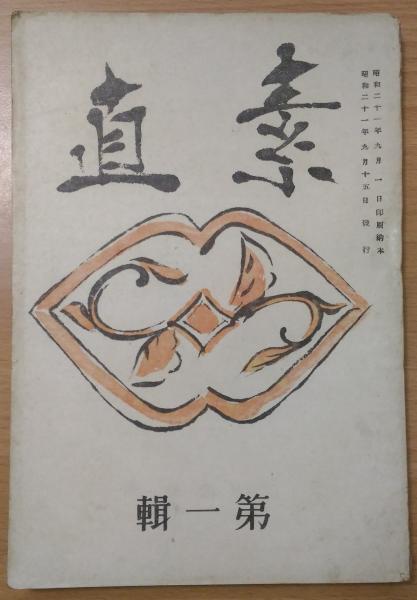 素直
昭和二十一年九月一日印刷納本
昭和二十一年九月十五日發行
第一輯